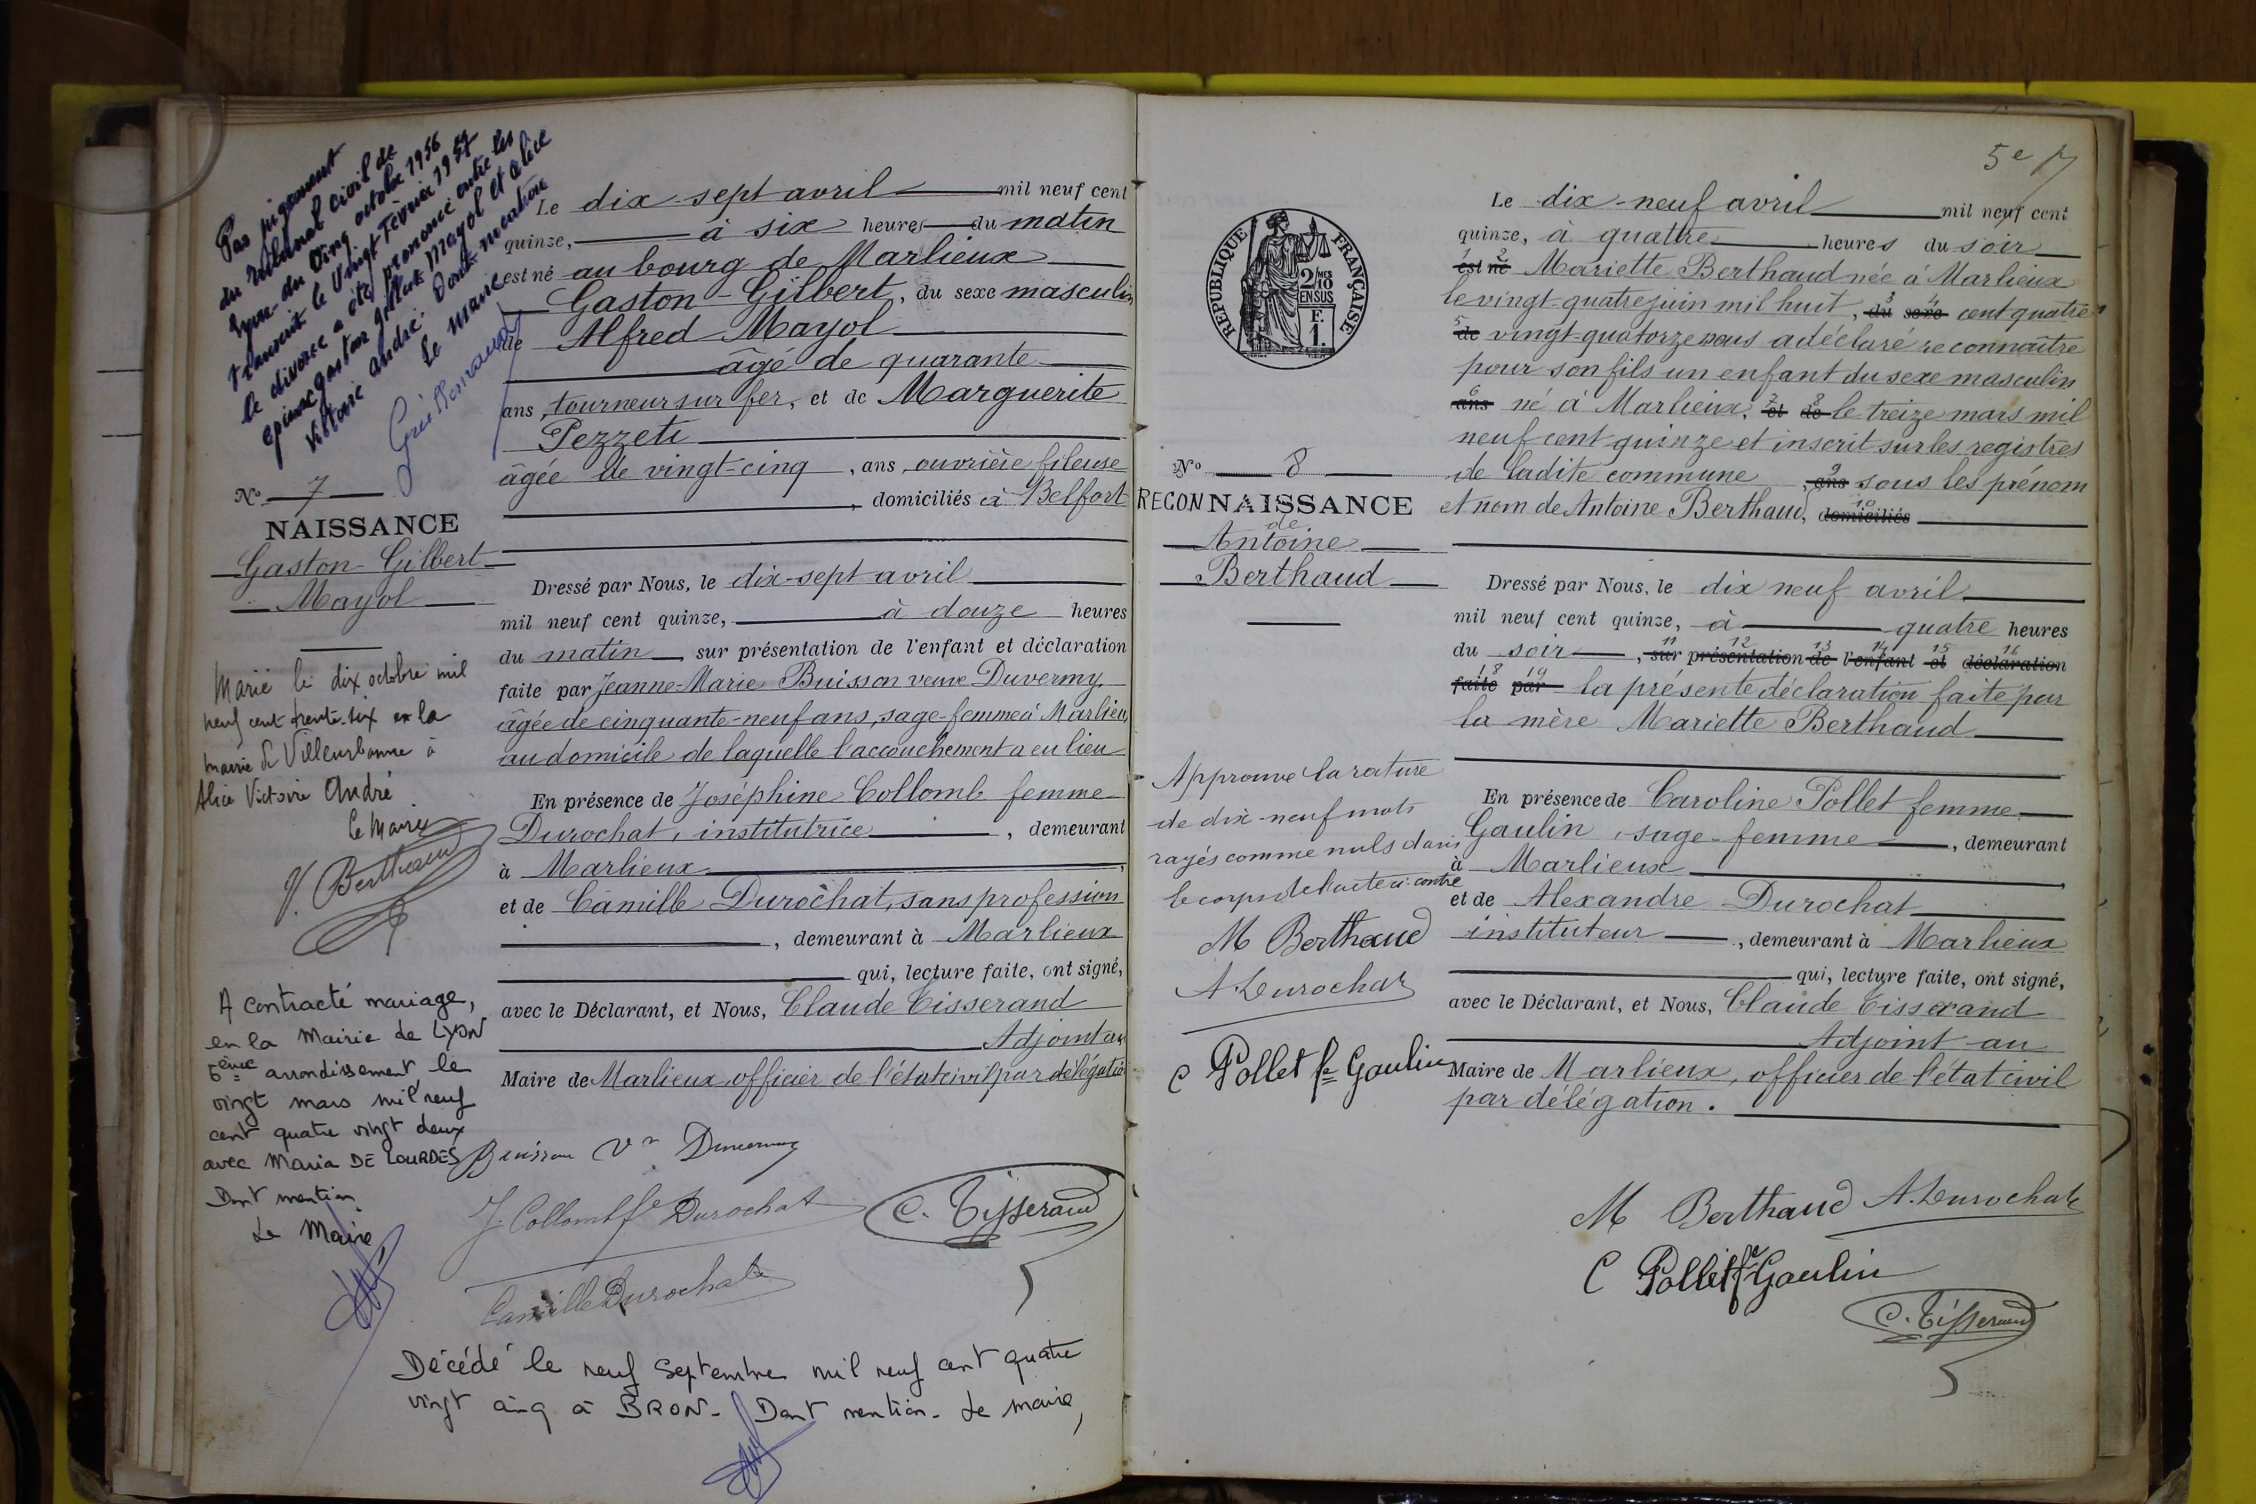 Par jugement
du Tribunal Civil de
Lyon du Cinq octobre 1956
transcrit le Vingt Février 1957
le divorce a été prononcé entre les
époux Gaston Gilbert Mayol et Alice
Victoire André. Dont mention
Le Maire
N° 7
NAISSANCE
Gaston-Gilbert
Mayol
Marié le dix octobre mil
neuf cent trente-six en la
mairie de Villeurbanne à
Alice Victoire André
le Maire
J. Berthaud
A contracté mariage,
en la Mairie de LYON
5ème arrondissement le
vingt mars mil neuf
cent quatre vingt deux
avec Maria DE LOURDES
Dont mention
Le Maire
Le dix-sept avril mil neuf cent
quinze, à six heures du matin
est né au bourg de Marlieux
Gaston-Gilbert, du sexe masculin
de Alfred Mayol
âgé de quarante
ans, tourneur sur fer, et de Marguerite
Pezzeti
âgée de vingt-cinq, ans, ouvrière fileuse
, domiciliés à Belfort
Dressé par Nous, le dix-sept avril
mil neuf cent quinze, à douze heures
du matin, sur présentation de l'enfant et déclaration
faite par Jeanne-Marie Buisson veuve Duvermy
âgée de cinquante-neuf ans, sage-femme à Marlieu
au domicile de laquelle l'accouchement a eu lieu
En présence de Joséphine Collomb femme
Durochat, institutrice, demeurant
à Marlieux,
et de Camille Durochat, sans profession
, demeurant à Marlieux
qui, lecture faite, ont signé,
avec le Déclarant, et Nous, Claude Tisserand
Adjoint au
Maire de Marlieux, officier de l'état civil par délégation
Buisson Ve Duvermy
J. Collomb fe Durochat
C. Tisserand
Camille Durochat
Décédé le neuf septembre mil neuf cent quatre
vingt cinq à BRON - Dont mention - Le maire,
5e
RÉPUBLIQUE FRANÇAISE
2/10
EN SUS
F.
1.
N° 8
RECONNAISSANCE
de
Antoine
Berthaud
Approuvé la rature
de dix-neuf mots
rayés comme nuls dans
le corps de l'acte ci-contre
M Berthaud
A. Durochat
C Pollet fe Gaulin
Le dix-neuf avril mil neuf cent
quinze, à quatre heures du soir
1 2
est né Mariette Berthaud née à Marlieux
3 4
le vingt-quatre juin mil huit, du sexe cent quatre
5
de vingt-quatorze nous a déclaré reconnaître
pour son fils un enfant du sexe masculin
6 7 8
ans né à Marlieux, et de le treize mars mil
neuf cent quinze et inscrit sur les registres
9
de ladite commune, ans sous les prénom
10
et nom de Antoine Berthaud, domiciliés
Dressé par Nous, le dix neuf avril
mil neuf cent quinze, à quatre heures
11 12 13 14 15 16
du soir, sur présentation de l'enfant et déclaration
18 19
faite par la présente déclaration faite par
la mère Mariette Berthaud
En présence de Caroline Pollet femme
Gaulin, sage-femme, demeurant
à Marlieux,
et de Alexandre Durochat
instituteur, demeurant à Marlieux
qui, lecture faite, ont signé,
avec le Déclarant, et Nous, Claude Tisserand
Adjoint au
Maire de Marlieux, officier de l'état civil
par délégation.
M Berthaud A. Durochat
C Pollet fe Gaulin
C. Tisserand